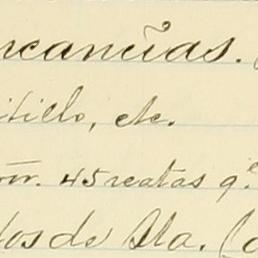 rcancías.
itillo, etc.
or. 45 reatas q.e
los de Sta.